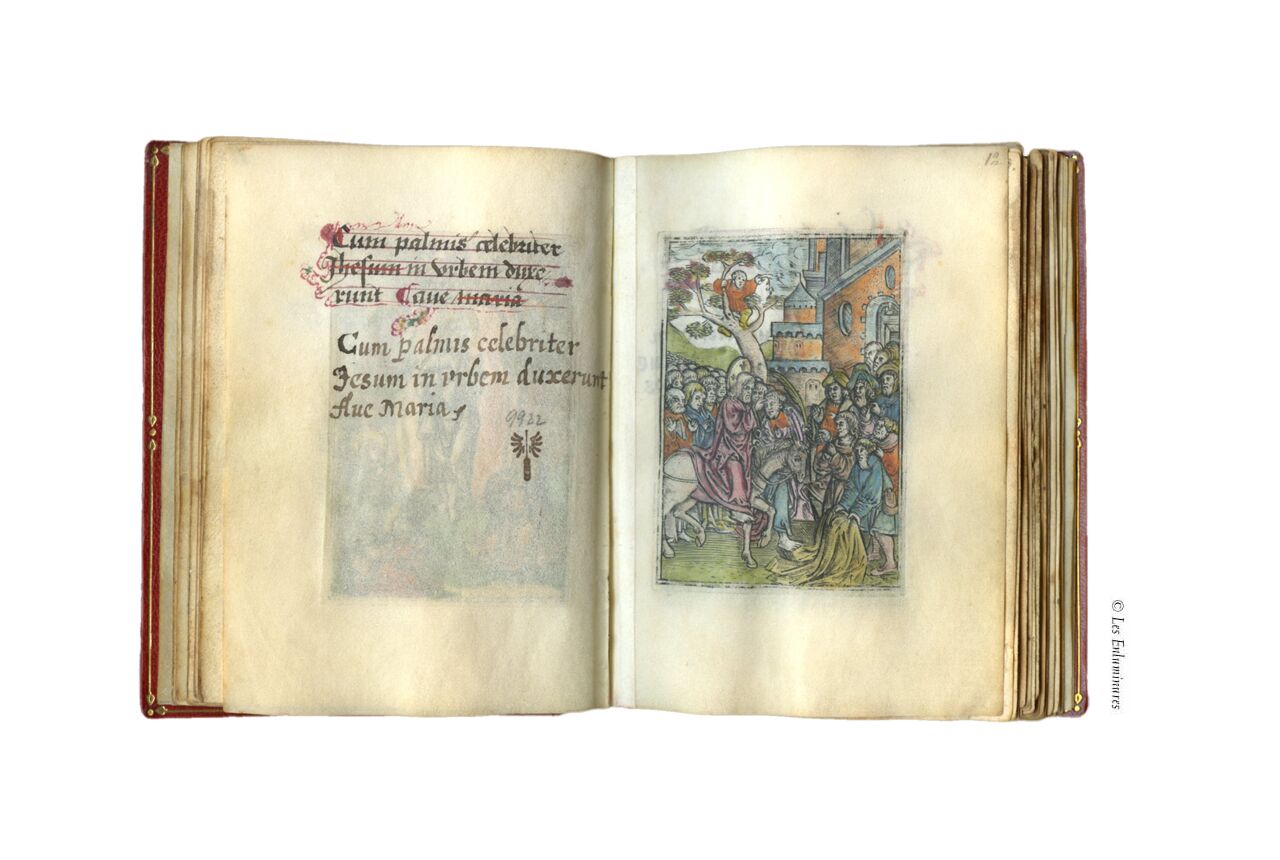 Cum palmis celebriter
Jhesum in vrbem duxe
runt Aue maria
Cum palmis celebriter
Jesum in vrbem duxerunt
Aue Maria
9922
12
© Les Enluminures